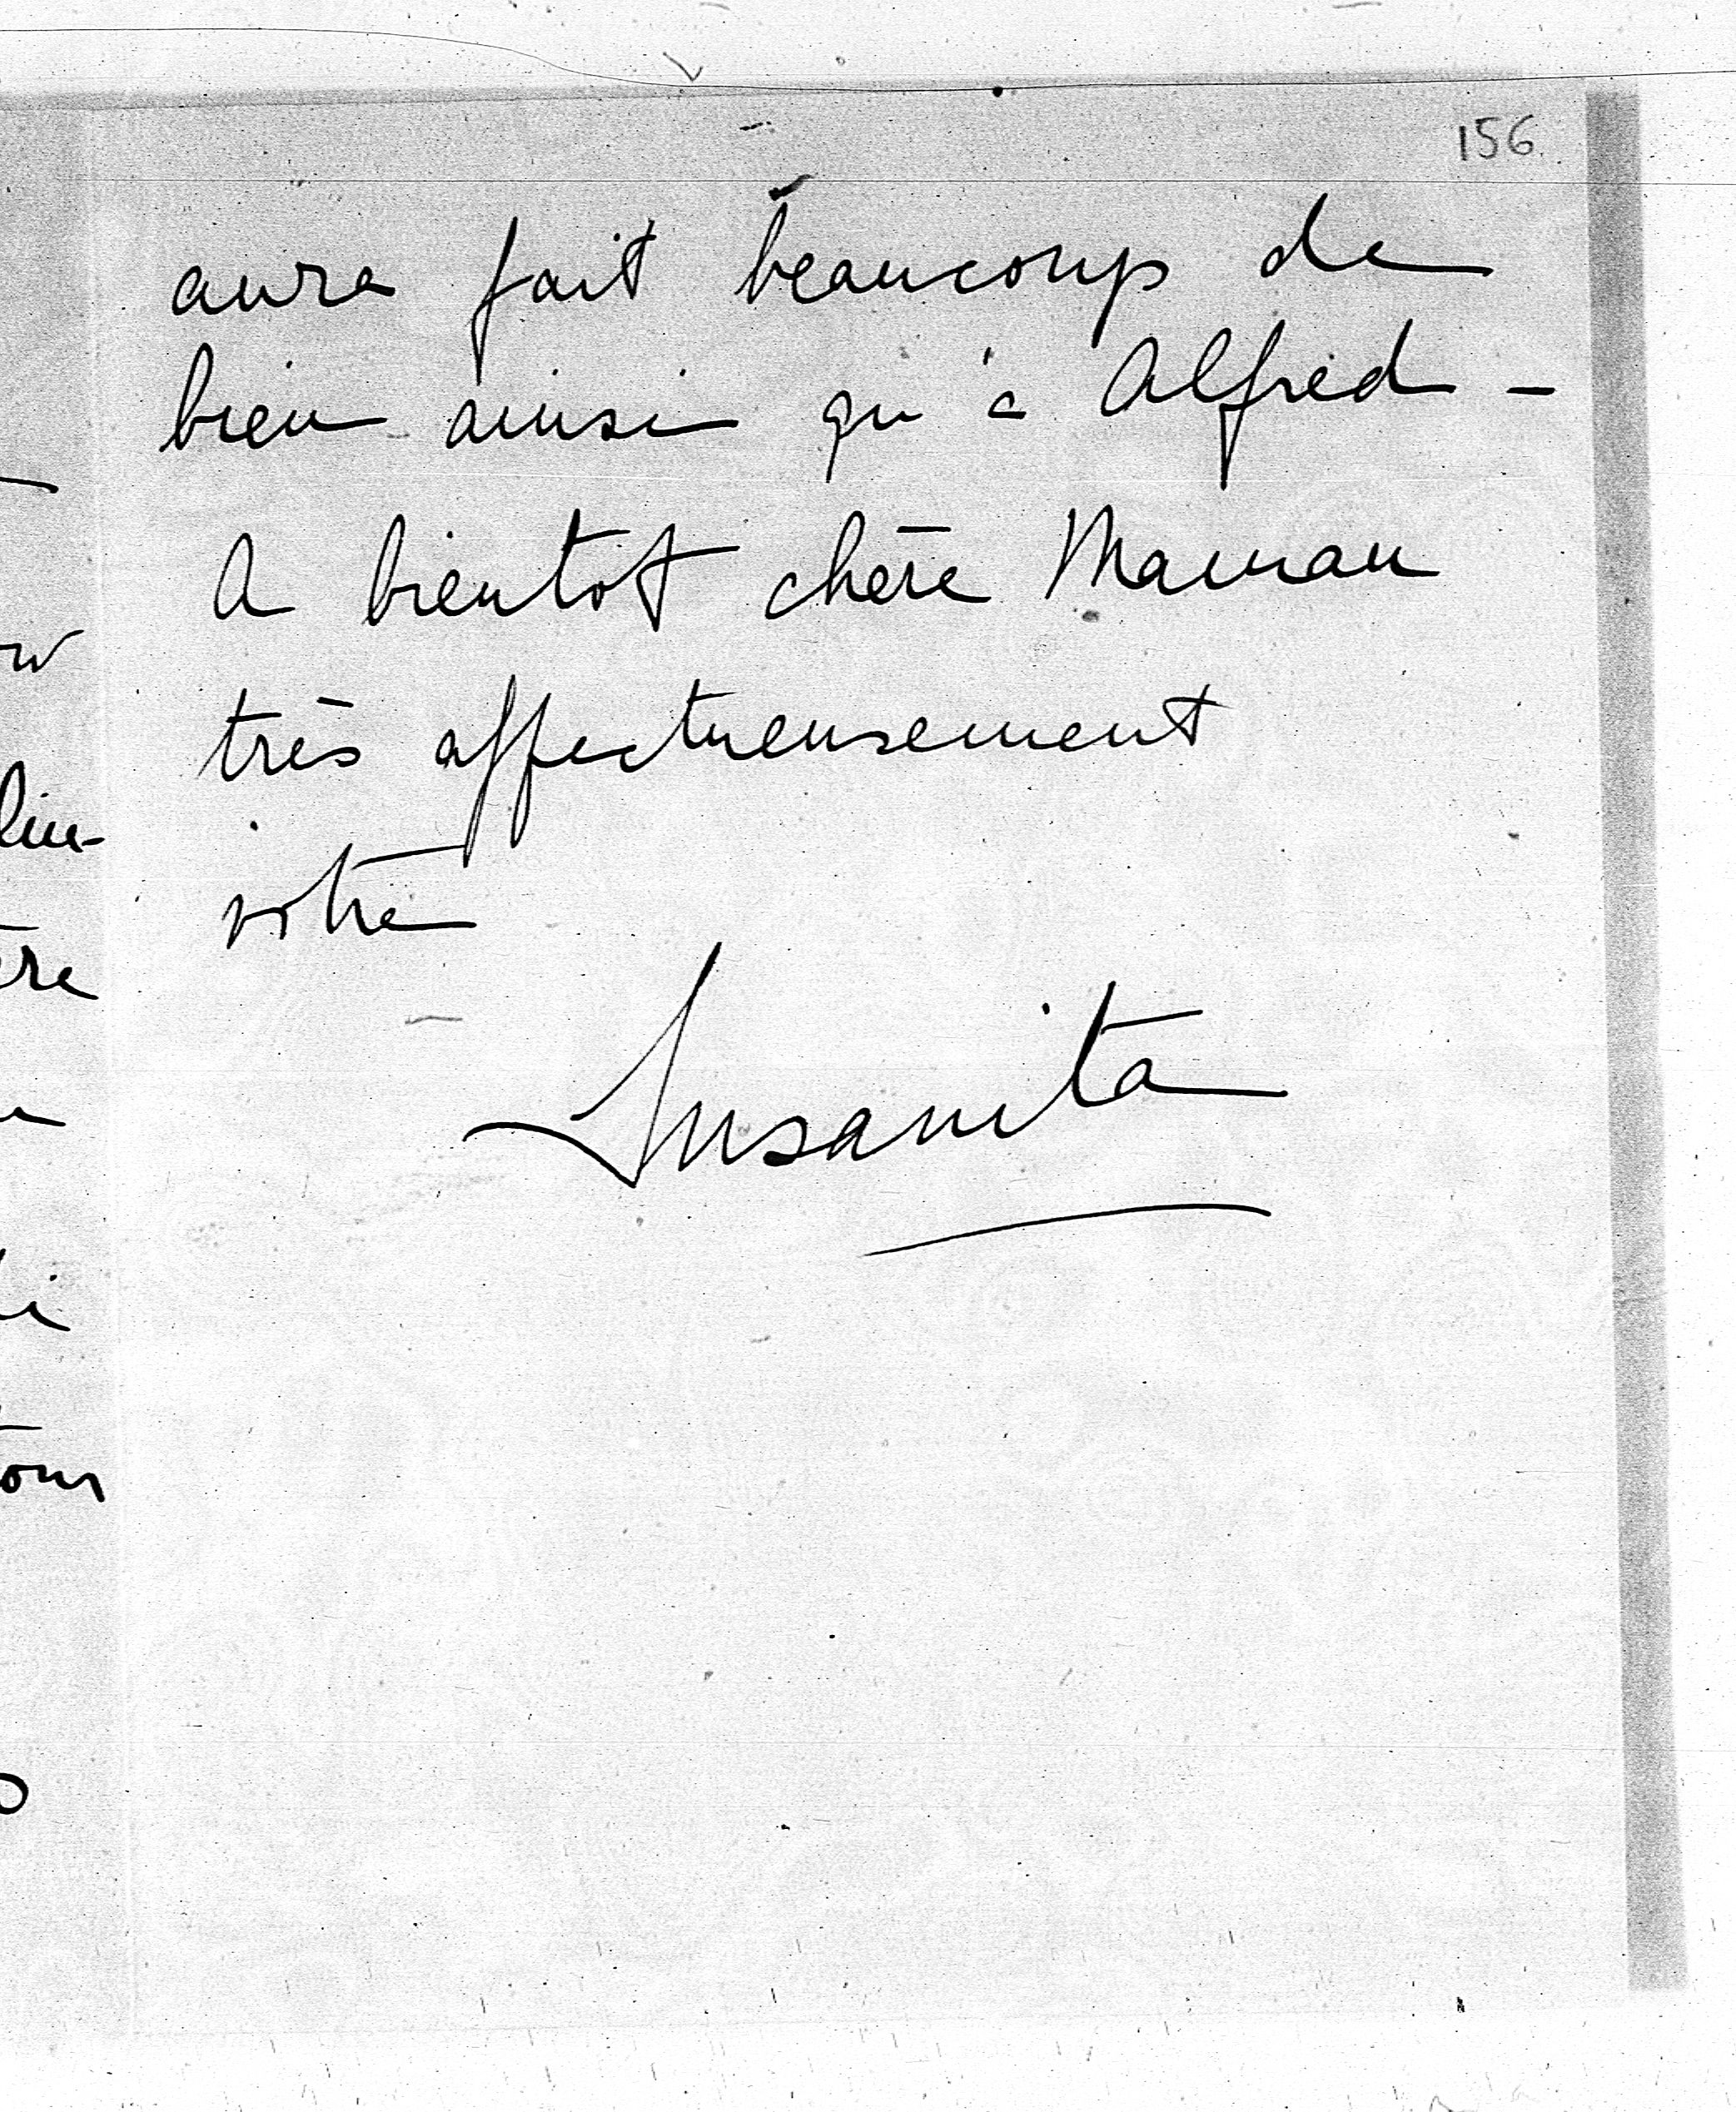 156
aura fait beaucoup de
bien ainsi qu'à Alfred -
A bientot chère Maman
très affectueusement
votre
Susanita